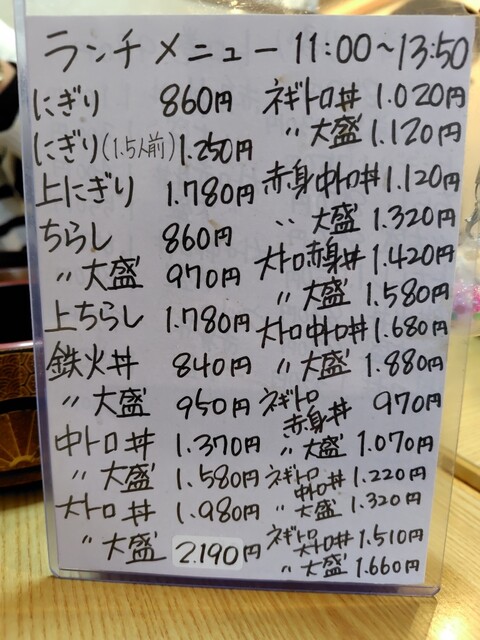 ランチメニュー 11:00~13:50
にぎり 860円
にぎり(1.5人前) 1.250円
上にぎり 1.780円
ちらし 860円
〃 大盛 970円
上ちらし 1.780円
鉄火丼 840円
〃 大盛 950円
中トロ丼 1.370円
〃 大盛 1.580円
大トロ丼 1.980円
〃 大盛 2.190円
ネギトロ丼 1.020円
〃 大盛 1.120円
赤身中トロ丼 1.120円
〃 大盛 1.320円
大トロ赤身丼 1.420円
〃 大盛 1.580円
大トロ中トロ丼 1.680円
〃 大盛 1.880円
ネギトロ
赤身丼 970円
〃 大盛 1.070円
ネギトロ
中トロ丼 1.220円
〃 大盛 1.320円
ネギトロ
大トロ丼 1.510円
〃 大盛 1.660円